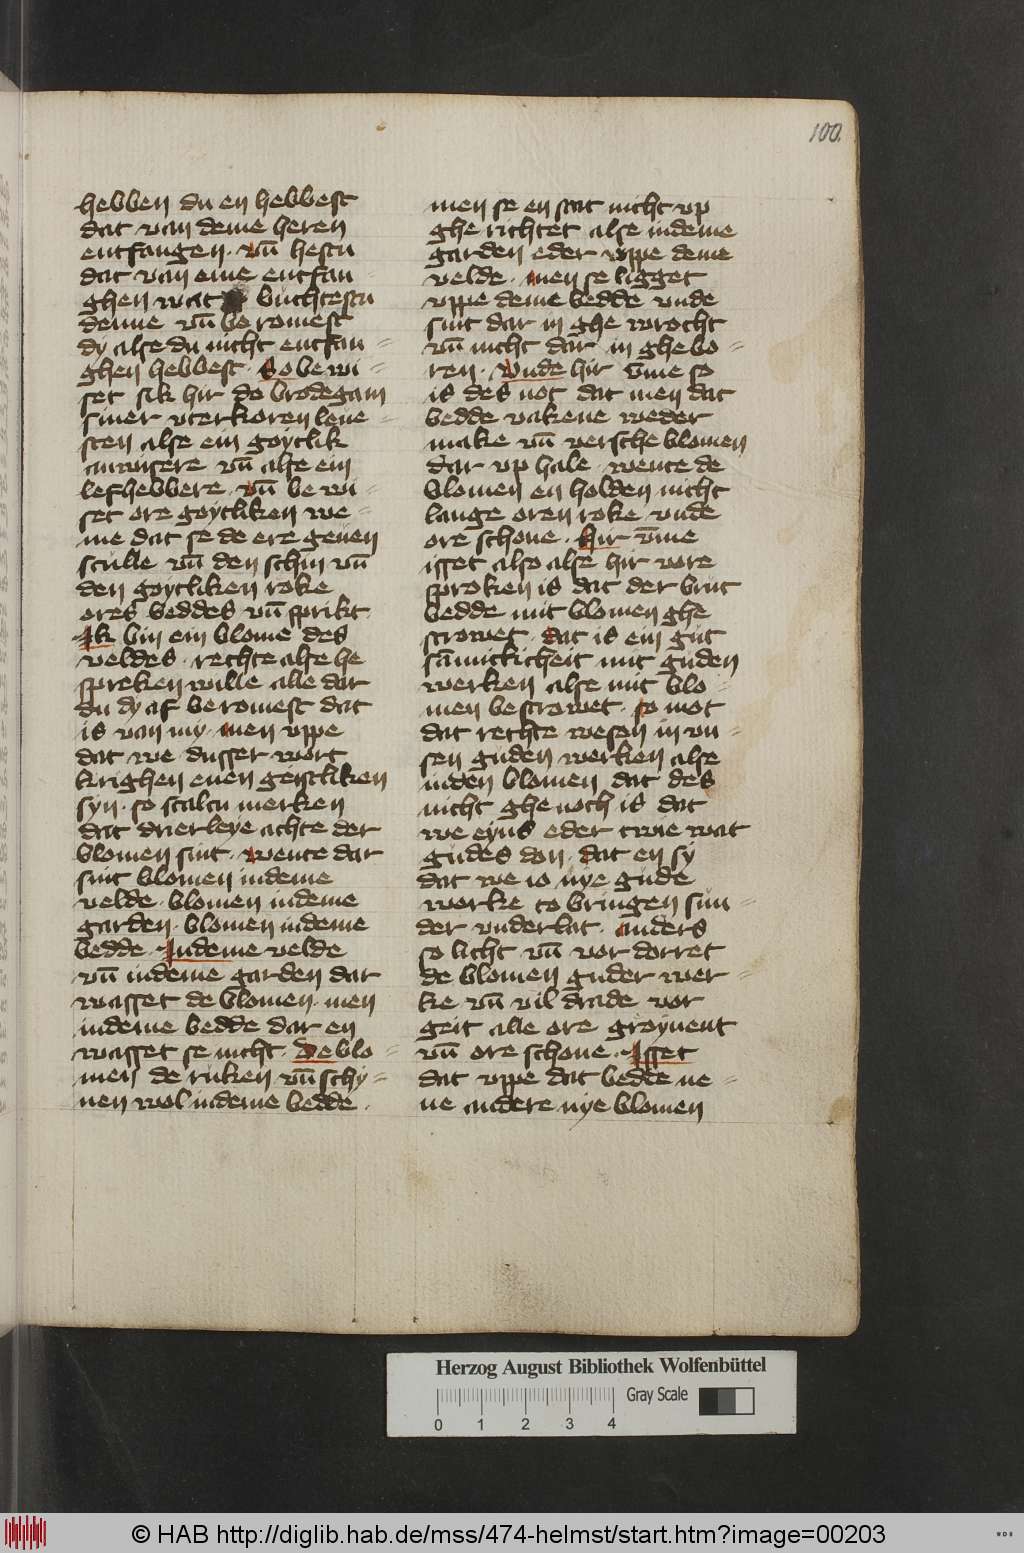 100.
hebben du en hebbest
dat van deme heren
entfangen · vn̄ hestu
dat van eme entfan
ghen wat buchtestu
denne vn̄ be romest
dy alse du nicht entfan =
ghen hebbest · So be wi =
set sik hir do brodegam
siner vterkoren leue =
sten alse ein goytlik
anwisere vn̄ alse ein
lefhebbere · vn̄ be wi =
set ore goytliken we =
me dat se de ere geuen
sculle vn̄ den schin vn̄
den goytliken roke
ores beddes vn̄ sprikt
Ik bin ein blome des
veldes · rechte alse he
spreken wille alle dar
du dy af beromest dat
is van my · men vppe
dat we dusser wort
krighen euen geistliken
syn · so scaltu merken
dat drierleye achte der
blomen sint · wente dar
sint blomen indeme
velde · blomen indeme
garden · blomen indeme
bedde · Indeme velde
vn̄ indeme garden dar
wasset de blomen · men
indeme bedde dar en
wasset se nicht · De blo =
men de ruken vn̄ schy =
nen wol indeme bedde ·
men se en stat nicht vp
ghe richtet alse indeme
garden eder vppe deme
velde · men se ligget
vppe deme bedde vnde
sint dar in ghe wrocht
vn̄ nicht dar in ghe bo =
ren · Vnde hir v̄me so
is des not dat men dat
bedde vakene weder
make vn̄ versche blomen
dar vp hale · wente de
blomen en holden nicht
lange oren roke vnde
ore schone · Hir v̄me
isset also alse hir vore
sproken is dat der brut
bedde mit blomen ghe
strowet · dat is ein gut
sāmitkicheit mit guden
werken alse mit blo =
men bestrowet · so mot
dat rechte wesen in vn =
sen guden werken alse
inden blomen dat des
nicht ghe noch is dat
we eyns eder twie wat
gudes don · dat en sy
dat we io nye gude
worke to bringen sun =
der vnderlat · anders
so licht vn̄ vor dorret
de blomen guder wer =
ke vn̄ vil drade vor
geit alle ore groynent
vn̄ ore schone · Isset
dat vppe dat bedde ne =
ne andere nye blomen
Herzog August Bibliothek Wolfenbüttel
Gray Scale
0 1 2 3 4
© HAB http://diglib.hab.de/mss/474-helmst/start.htm?image=00203